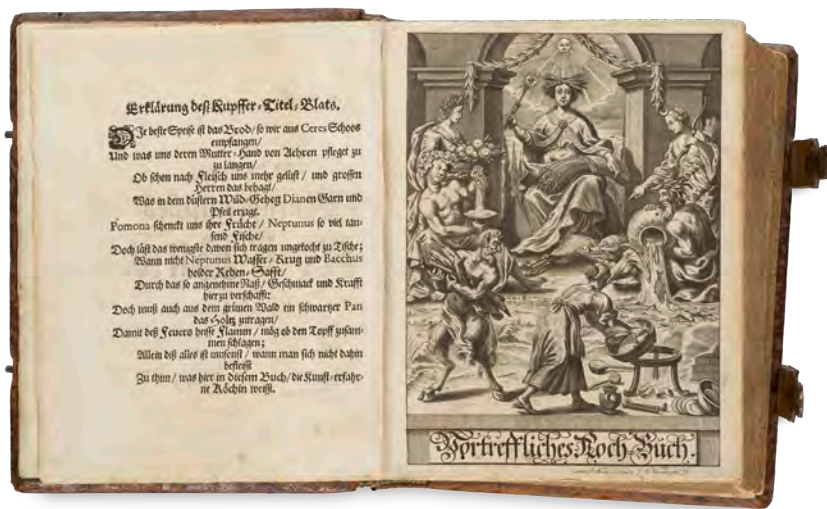 Erklärung deß Kupffer-Titel-Blats.
DJe beste Speise ist das Brod/ so wir aus Ceres Schoos
empfangen/
Und was uns deren Mutter-Hand von Aehren pfleget zu
zu langen/
Ob schon nach Fleisch uns mehr gelüst/ und grossen
Herren das behagt/
Was in dem düstern Wild-Geheg Dianen Garn und
Pfeil erjagt.
Pomona schenckt uns ihre Frücht/ Neptunus so viel tau-
send Fische/
Doch läst das wenigste davon sich tragen ungekocht zu Tische;
Wann nicht Neptunus Wasser-Krug und Bacchus
holder Reben-Safft/
Durch das so angenehme Naß/ Geschmack und Krafft
hierzu verschafft:
Doch muß auch aus dem grünen Wald ein schwartzer Pan
das Holtz zutragen/
Damit deß Feuers heisse Flamm/ mög ob den Topff zusam-
men schlagen;
Allein diß alles ist umsonst/ wann man sich nicht dahin
befleist
Zu thun/ was hier in diesem Buch/ die Kunst-erfahr-
ne Köchin weist.
Vortreffliches Koch-Buch.